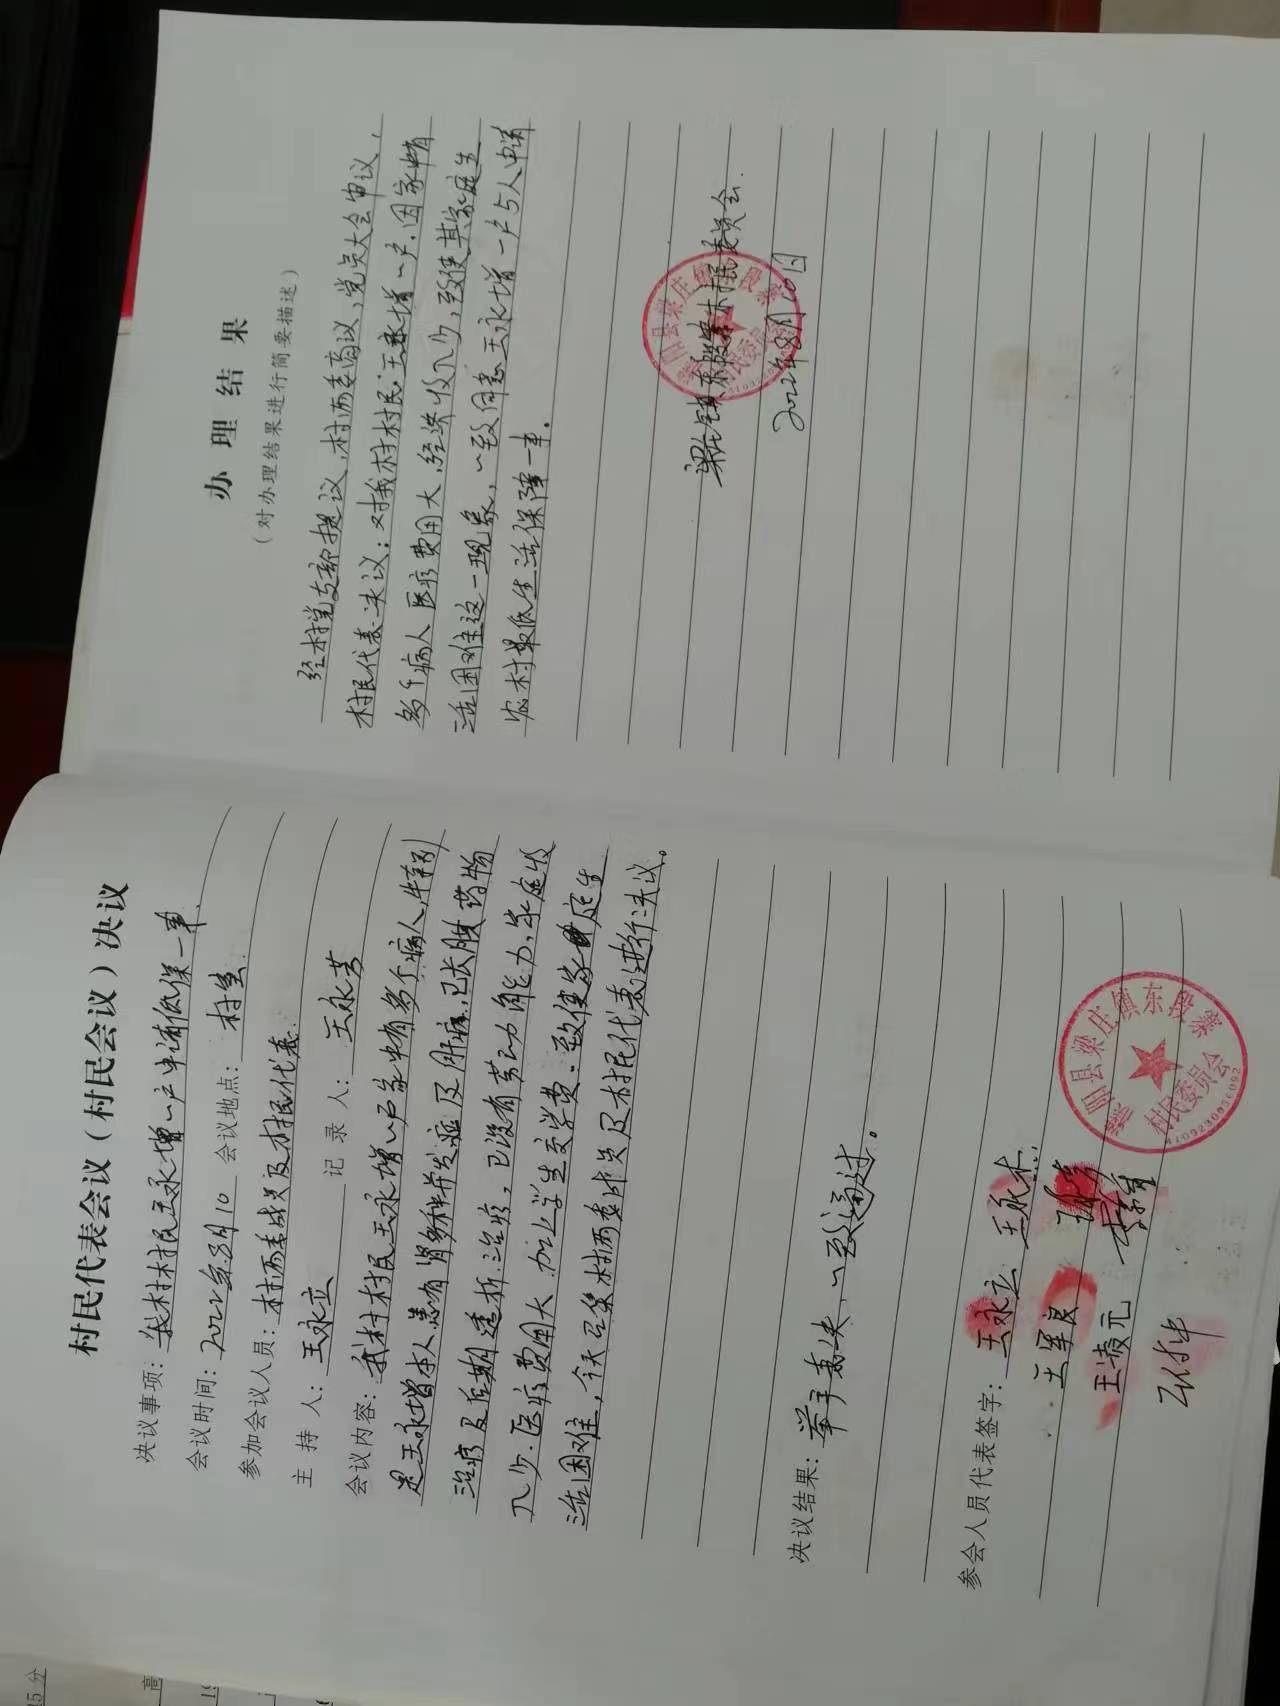 村民代表会议（村民会议）决议
决议事项：我村村民王永增一户申请低保一事.
会议时间：2022年8月10 会议地点：村室.
参加会议人员：村两委成员及村民代表.
主持人：王永立 记录人：王永芳
会议内容：我村村民王永增一户家中有多个病人,特别
是王永增本人患有肾 并发症及肝病,已长服药物
治疗及后期透析治疗,已没有劳动能力,家庭收
入少.医疗费用大.加上学生交学费.致使家庭生
活困难,今天召集村两委成员及村民代表进行决议。
决议结果：举手表决,一致通过。
参会人员代表签字：王永立 王永
王军良
王凌元
濮阳县梁庄镇东段寨
村民委员会
办理结果
（对办理结果进行简要描述）
经村党支部提议,村两委商议,党员大会审议,
村民代表决议：对我村村民王永增一户.因家中有
多个病人医疗费用大,经济收入少,致使其家庭生
活困难这一现象,一致同意王永增一户5人申请
农村最低生活保障一事.
梁庄镇东段寨村民委员会.
2022年8月10日
濮阳县梁庄镇东段寨
村民委员会
15分
高